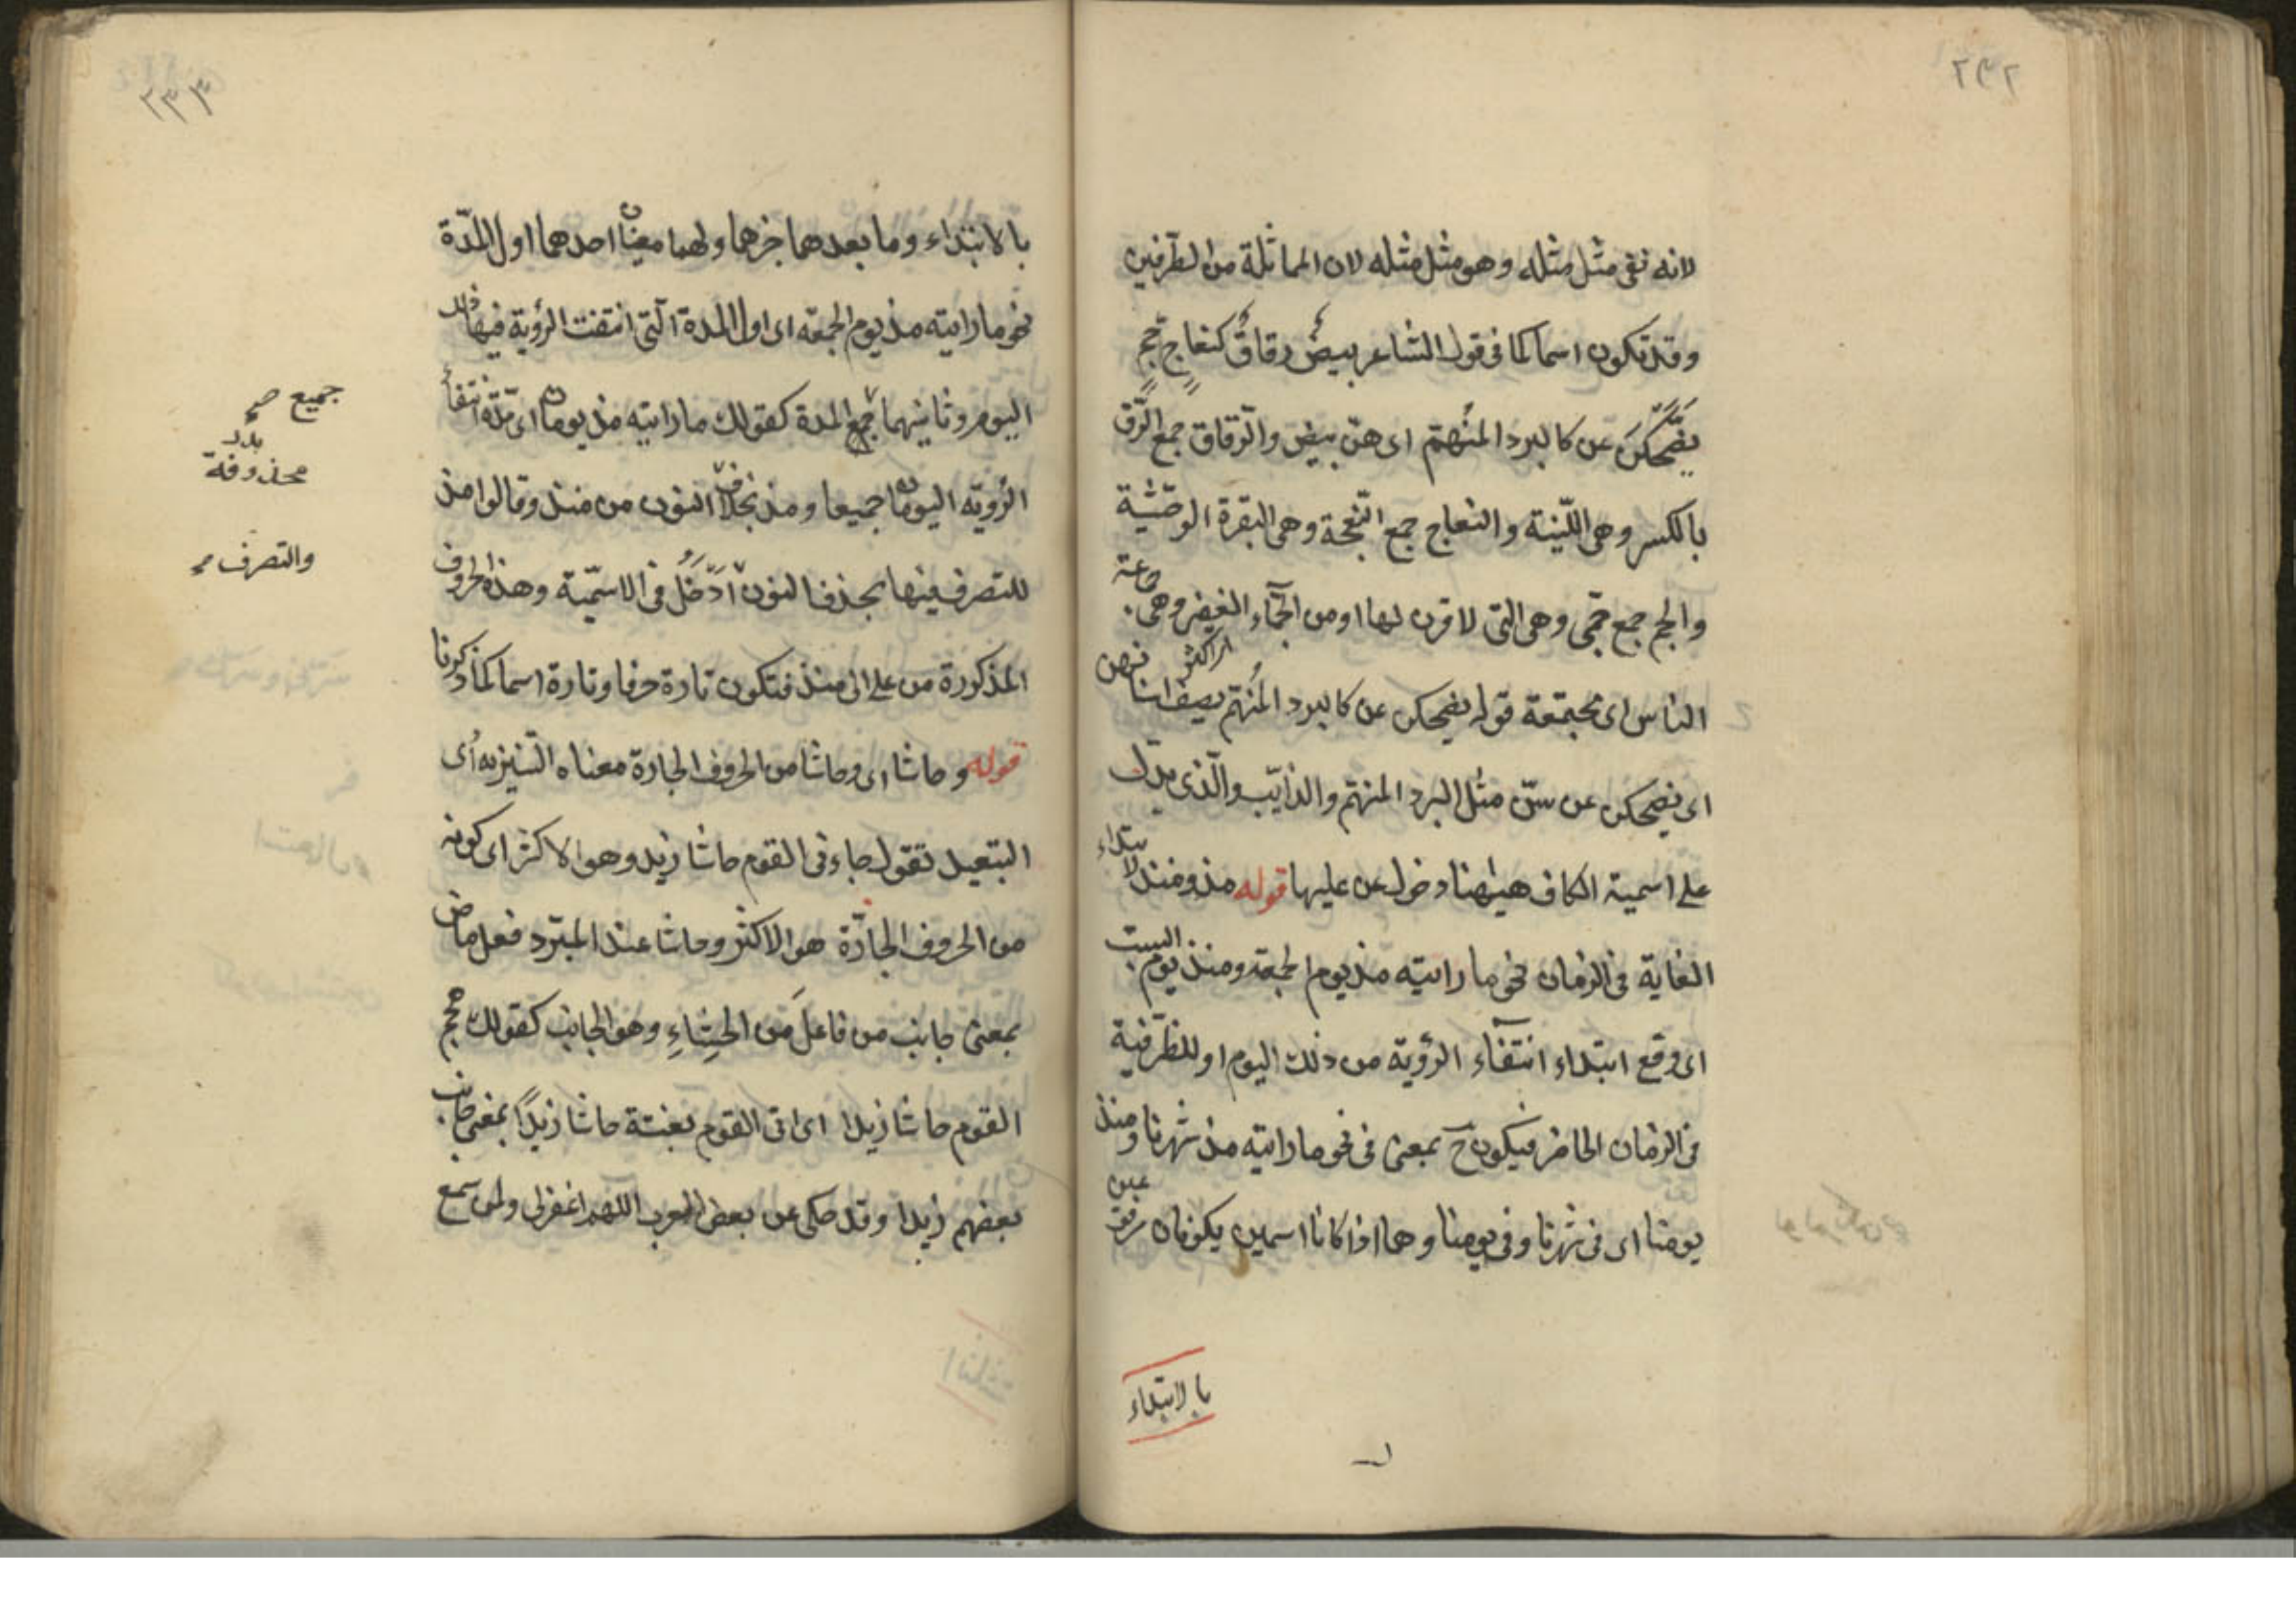 ٢٣٢
لانه نفى مثل مثله وهو مثل مثله لان المماثلة من الطرفين
وقد تكون اسما كما فى قول الشاعر بيضٌ رقاقٌ كنعاجٍ جمٍّ
يضحكن عن كالبرد المنهمّ اى هنّ بيض والرّقاق جمع الرّق
بالكسر وهى اللّينة والنعاج جمع النّعجة وهى البقرة الوحشية
والجم جمع جمّى وهى التى لا قرن لها او من الجمّاء الغفير وهى جماعة
الناس اى مجتمعة قوله يضحكن عن كالبرد المُنهمّ يصف اسنانهن
اى يضحكن عن سنّ مثل البرد المنهمّ والذايب والّذى يدلّ
على اسمية الكاف هيهنا دخول عن عليها قوله مذ ومنذ لابتداء
الغاية فى الزمان نحو ما رايته مذ يوم الجمعة ومنذ يوم السبت
اى وقع ابتداء انتفاء الرؤية من ذلك اليوم او للظرفية
فى الزمان الحاضر فيكون ح بمعنى فى نحو ما رايته مذ شهرنا ومنذ
يومنا اى فى شهرنا وفى يومنا وهما اذا كانا اسمين يكونان مرفوعين
بالابتداء
٢٣٣
بالابتداء وما بعدهما خبرهما ولهما معنيان احدهما اول المدّة
نحو ما رايته مذ يوم الجمعة اى اول المدة الّتى انتفت الرؤية فيها ذلك
اليوم وثانيهما جمع المدة كقولك ما رايته مذ يومان اى مدّة انتفاء
الرؤية اليومان جميعا ومذ بخلاف النون من منذ وقالوا مذ
للتصرف فيها بحذف النون ادخلُ فى الاسمّية وهذه الحروف
المذكورة من على الى منذ فتكون تارة حرفا وتارة اسما كما ذكرنا
قوله وحاشا اى وحاشا من الحروف الجارة معناه التنزيه اى
التبعيد تقول جاءنى القوم حاشا زيد وهو الاكثر اى كونه
من الحروف الجارّة هو الاكثر وحاشا عند المبرّد فعل ماض
بمعنى جانب من فاعلَ من الحشاءِ وهو الجانب كقولك هجم
القوم حاشا زيدا اى اتى القوم بغتة حاشا زيدًا بمعنى جانب
بعضهم زيدا وقد حكى عن بعض العرب اللهم اغفر لى ولمن سمع
جميع صح
بدل
محذوفة
والتصرف صح